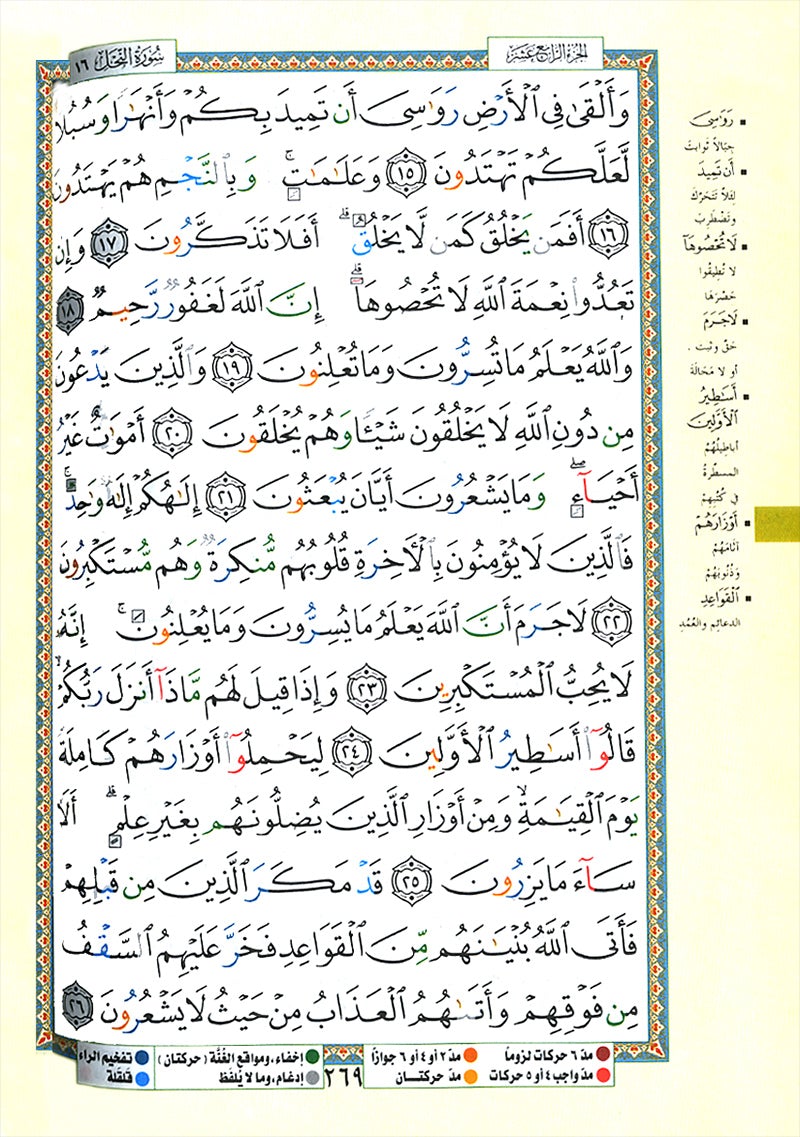 الجزء الرابع عشر
سورة النحل ١٦
وَأَلْقَىٰ فِي ٱلْأَرْضِ رَوَٰسِىَ أَن تَمِيدَ بِكُمْ وَأَنْهَٰرًا وَسُبُلًا
لَّعَلَّكُمْ تَهْتَدُونَ ١٥ وَعَلَٰمَٰتٍ ۚ وَبِٱلنَّجْمِ هُمْ يَهْتَدُونَ
١٦ أَفَمَن يَخْلُقُ كَمَن لَّا يَخْلُقُ ۗ أَفَلَا تَذَكَّرُونَ ١٧ وَإِن
تَعُدُّوا۟ نِعْمَةَ ٱللَّهِ لَا تُحْصُوهَا ۗ إِنَّ ٱللَّهَ لَغَفُورٌ رَّحِيمٌ ١٨
وَٱللَّهُ يَعْلَمُ مَا تُسِرُّونَ وَمَا تُعْلِنُونَ ١٩ وَٱلَّذِينَ يَدْعُونَ
مِن دُونِ ٱللَّهِ لَا يَخْلُقُونَ شَيْـًٔا وَهُمْ يُخْلَقُونَ ٢٠ أَمْوَٰتٌ غَيْرُ
أَحْيَآءٍ ۖ وَمَا يَشْعُرُونَ أَيَّانَ يُبْعَثُونَ ٢١ إِلَٰهُكُمْ إِلَٰهٌ وَٰحِدٌ ۚ
فَٱلَّذِينَ لَا يُؤْمِنُونَ بِٱلْـَٔاخِرَةِ قُلُوبُهُم مُّنكِرَةٌ وَهُم مُّسْتَكْبِرُونَ
٢٢ لَا جَرَمَ أَنَّ ٱللَّهَ يَعْلَمُ مَا يُسِرُّونَ وَمَا يُعْلِنُونَ ۚ إِنَّهُۥ
لَا يُحِبُّ ٱلْمُسْتَكْبِرِينَ ٢٣ وَإِذَا قِيلَ لَهُم مَّاذَآ أَنزَلَ رَبُّكُمْ ۙ
قَالُوٓا۟ أَسَٰطِيرُ ٱلْأَوَّلِينَ ٢٤ لِيَحْمِلُوٓا۟ أَوْزَارَهُمْ كَامِلَةً
يَوْمَ ٱلْقِيَٰمَةِ ۙ وَمِنْ أَوْزَارِ ٱلَّذِينَ يُضِلُّونَهُم بِغَيْرِ عِلْمٍ ۗ أَلَا
سَآءَ مَا يَزِرُونَ ٢٥ قَدْ مَكَرَ ٱلَّذِينَ مِن قَبْلِهِمْ
فَأَتَى ٱللَّهُ بُنْيَٰنَهُم مِّنَ ٱلْقَوَاعِدِ فَخَرَّ عَلَيْهِمُ ٱلسَّقْفُ
مِن فَوْقِهِمْ وَأَتَىٰهُمُ ٱلْعَذَابُ مِنْ حَيْثُ لَا يَشْعُرُونَ ٢٦
▪ رَوَٰسِىَ
جبالاً ثوابتَ
▪ أَن تَمِيدَ
لئلا تتحرّك
وتضطرب
▪ لَا تُحْصُوهَآ
لا تُطيقوا
حَصْرَهَا
▪ لَا جَرَمَ
حقّ وثبت .
أو لا محالة
▪ أَسَٰطِيرُ
ٱلْأَوَّلِينَ
أباطيلُهُم
المسطّرةُ
في كُتُبِهِمْ
▪ أَوْزَارَهُمْ
آثامَهُمْ
وَذُنُوبَهُمْ
▪ ٱلْقَوَاعِدِ
الدعائم والعُمُدِ
مدّ ٦ حركات لزوماً
مدّ ٢ أو ٤ أو ٦ جوازاً
مدّ واجب ٤ أو ٥ حركات
مدّ حركتـــان
٢٦٩
إخفاء، ومواقع الغُنَّة (حركتان)
إدغام، وما لا يُلفَظ
تفخيم الراء
قلقلة